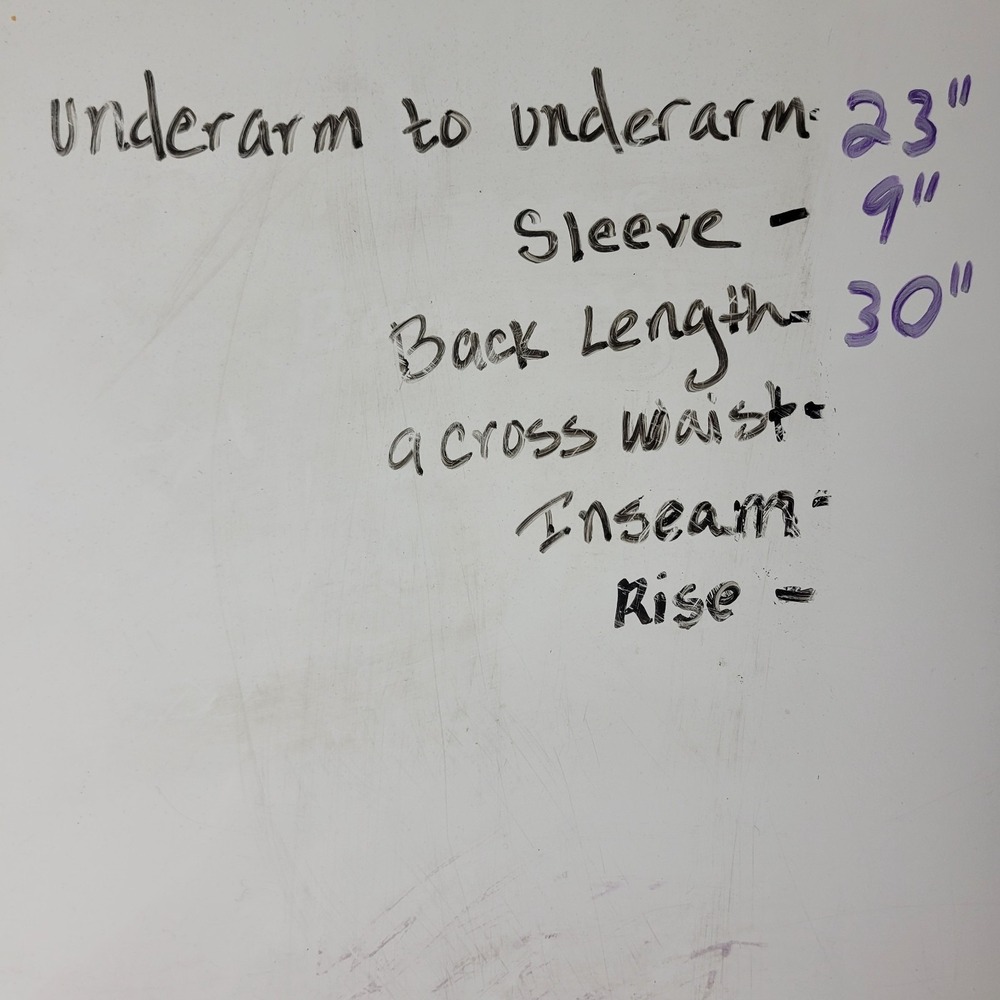 underarm to underarm- 23"
Sleeve - 9"
Back Length- 30"
across waist-
Inseam-
Rise -